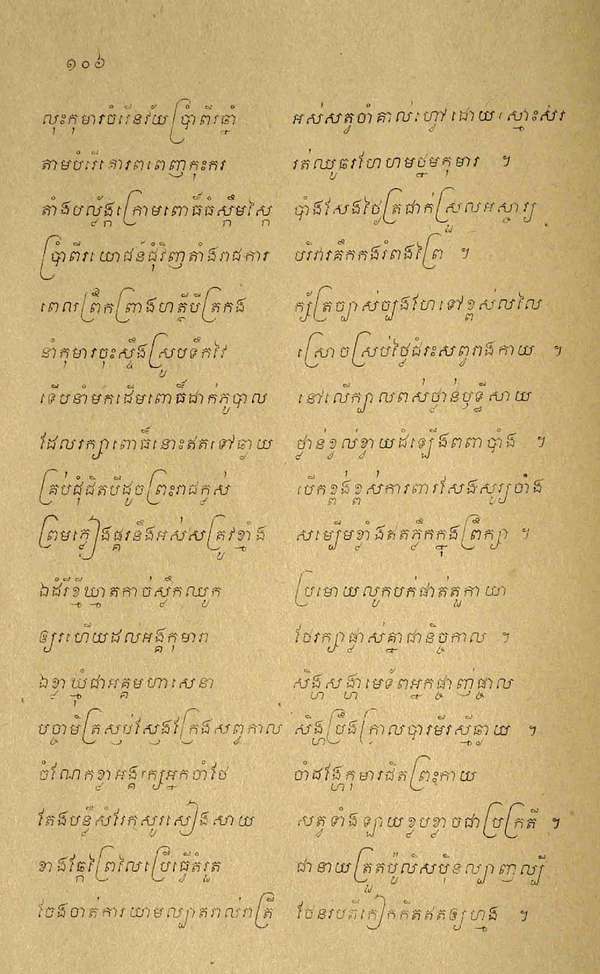 ១០៦
លុះកុមារចំរើនវ័យប្រាំពីរឆ្នាំ អស់សត្វចាំគាល់ហ្វេដោយស្មោះសរ
តាមបំរើគោរពពេញកុះករ រត់ឈូធរហែហមថ្នមកុមារ ។
តាំងបល្ល័ង្កក្រោមពោធិ៍ធំស្កឹមស្កៃ បាំងសែងថ្ងៃត្រជាក់ស្រួលអស្ចារ្យ
ប្រាំពីរយោជន៍ជុំវិញតាំងរាជការ បរិវារគឹកកងរំពងព្រៃ ។
ពេលព្រឹកព្រាងហត្ថ័បីត្រកង ក្ស័ត្រច្បាស់ច្បងហែទៅខ្ពស់លលៃ
នាំកុមារចុះស្ទឹងស្រូបទឹកវៃ ស្រោចស្រប់ថ្ងៃជំរះសព្វរាងកាយ ។
ទើបនាំមកដើមពោធិ៍ដាក់ភូបាល នៅលើក្បាលពស់ថ្កាន់ឫទ្ធីសាយ
ដែលរក្សាពោធិ៍នោះឥតទៅឆ្ងាយ ថ្កាន់ខ្វល់ខ្វាយដំឡើងពពាបាំង ។
គ្រប់ជុំជិតបីដូចព្រះរាជក្លស់ បើកខ្ពង់ខ្ពស់ការពារសែងសូរ្យចាំង
ព្រមភ្លៀងផ្គរនឹងអស់សត្រូវខ្មាំង សម្បើមខ្លាំងឥតភ្លឹកក្នុងព្រឹក្សា ។
ឯដំរីខ្ញីឃ្មាតកាច់ស្លឹកឈូក ប្រមោយលូកបក់ផាត់ត្តួកាយា
ឲ្យរហើយដល់អង្គកុមារា ចែរក្សាផ្លាស់គ្នាជានិច្ចកាល ។
ឯខ្លាឃ្មុំជាអគ្គមហាសេនា សិង្ហសង្ហាមេទ័ពអ្នកផ្ចាញ់ផ្ចាល
បច្ចាមិត្រស្ញប់ស្ញែងក្រែងសព្វកាល សិង្ហប្រឹងក្រោលបារមីរស្មីឆ្ងាយ ។
ចំណែកខ្លាអង្គរក្សអ្នកចាំវៃ ចាំដង្ហែកុមារជិតព្រះកាយ
តែងបន្លឺសំរែកសូរសៀងសាយ សត្វទាំងឡាយខ្លបខ្លាចជាប្រក្រតី ។
ខាងឆ្កែព្រៃលៃប្រើធ្វើតំរួត ជានាយត្រួតប៉ូលិសប៉ិនល្បាញល្បី
ចែងចាត់ការយាមល្បាតរាល់រាត្រី ចែនរបតិកៀកកិតឥតឲ្យហ្មង ។